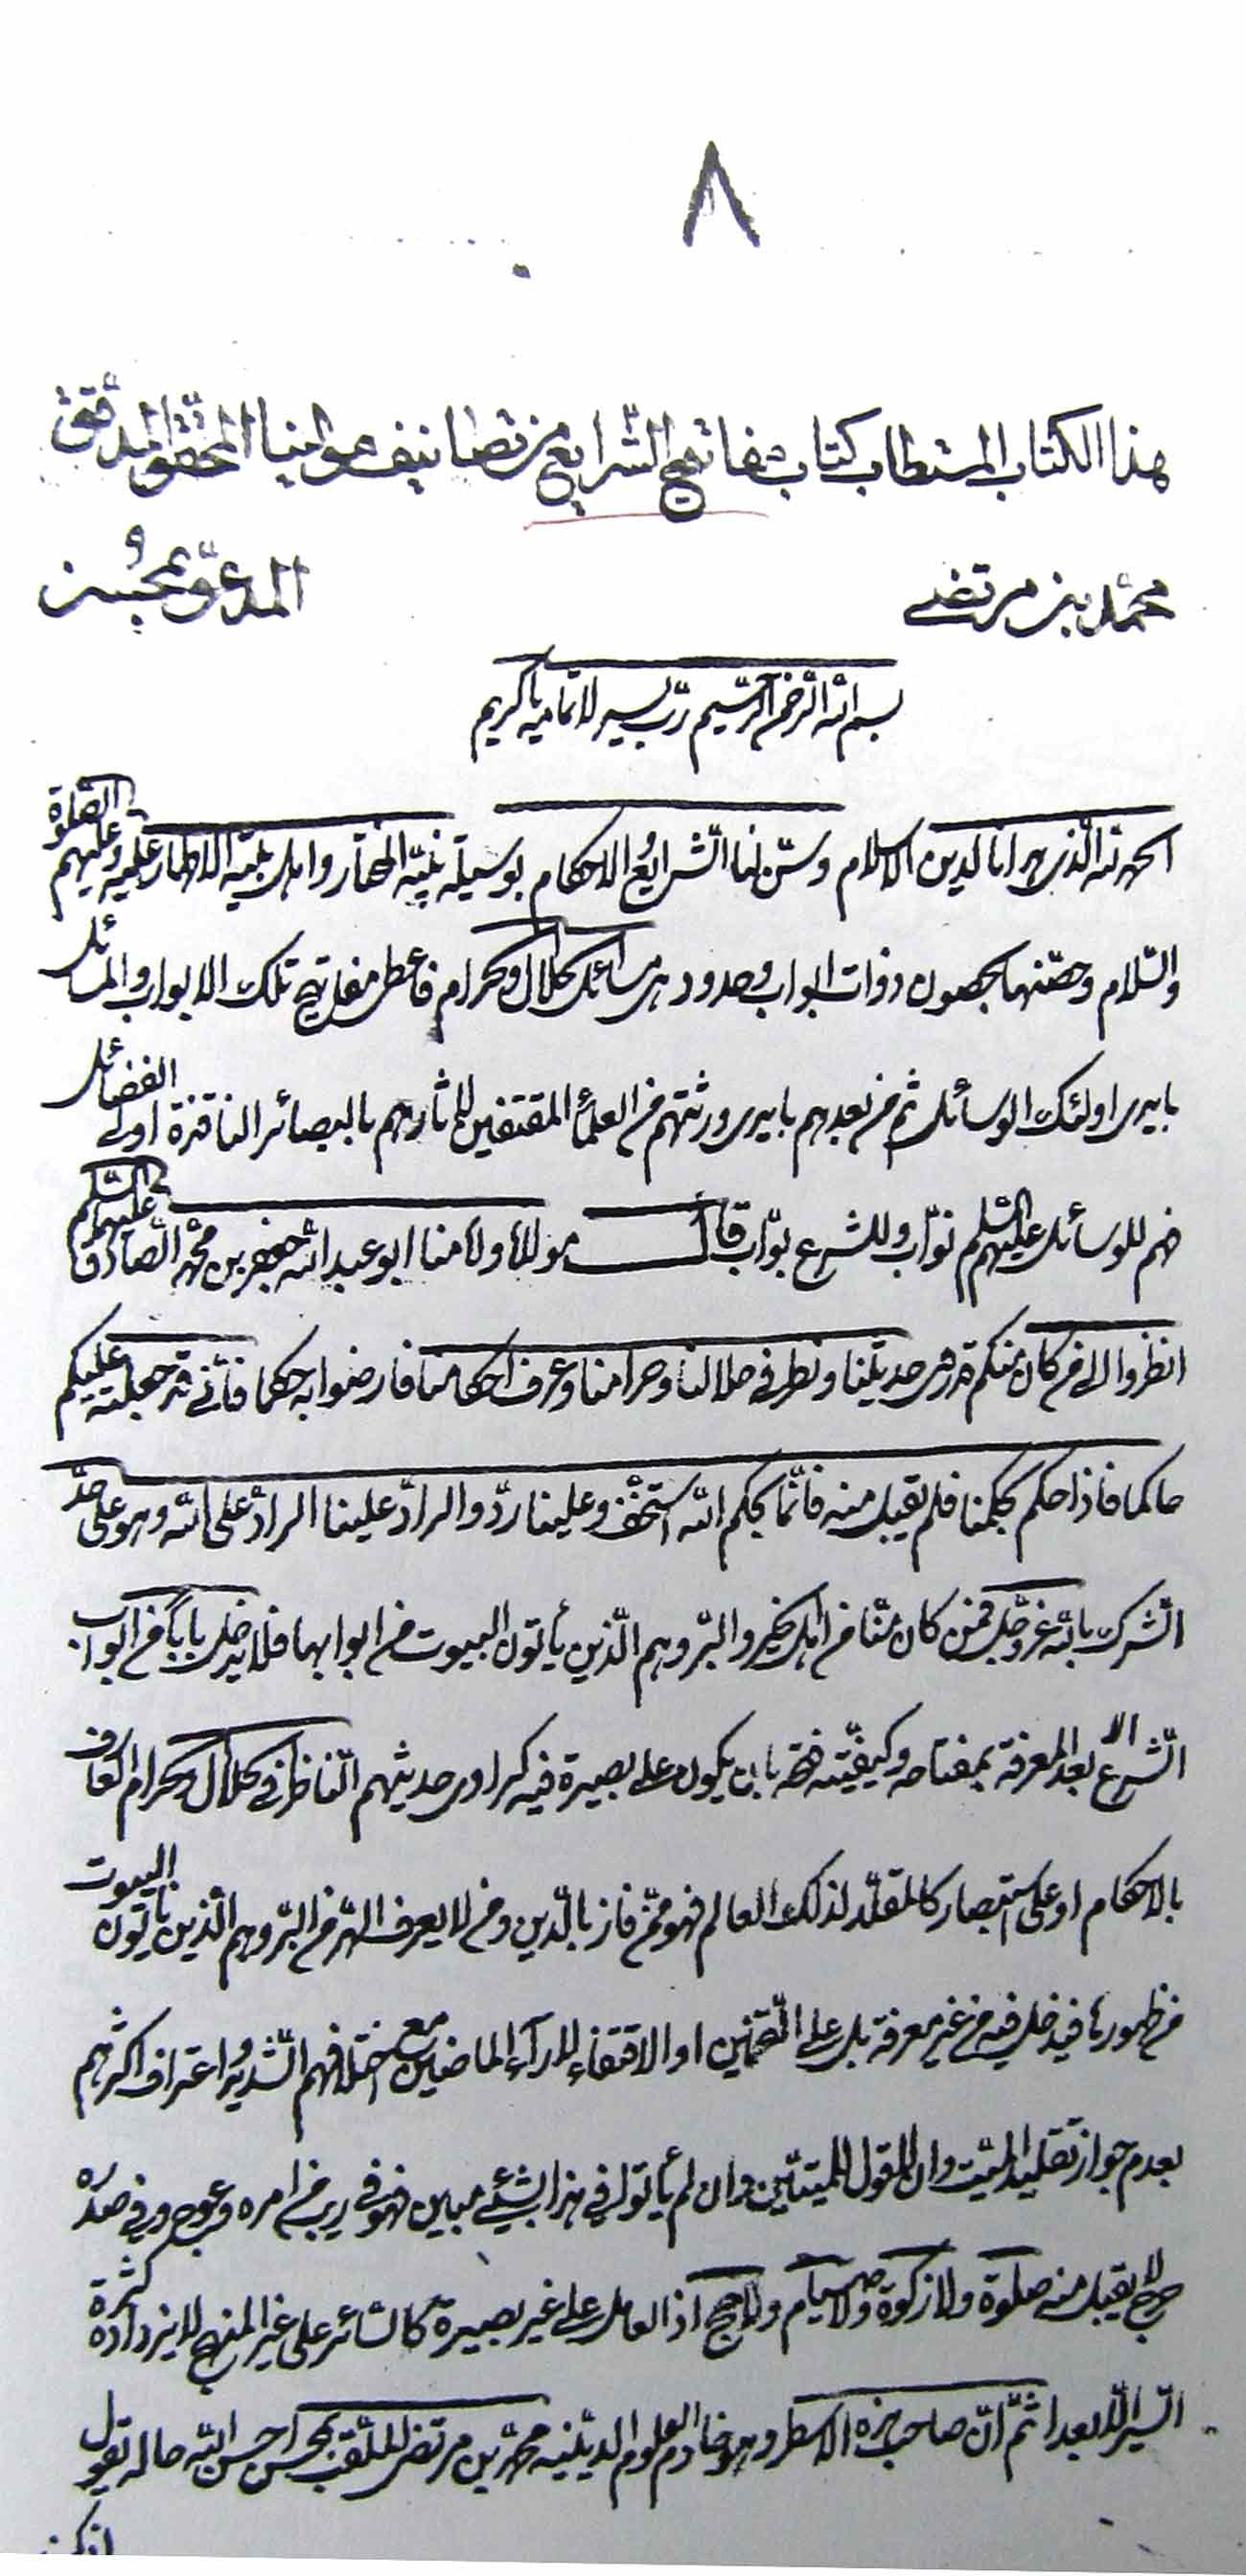 ٨
هذا الكتاب المستطاب كتاب مفاتيح الشرايع من تصانيف مولينا المحقق المدقق
محمد بن مرتضى المدعو بمحسن
بسم الله الرحمن الرحيم رب يسر لاتمامه يا كريم
الحمد لله الذي هدانا لدين الاسلام وسنّ لنا الشرايع والاحكام بوسيلة نبيّه المختار واهل بيته الاطهار عليه وعليهم الصلوة
والسّلام وحصّنها بحصون ذوات ابواب وحدود هي مسائل الحلال والحرام فاعطى مفاتيح تلك الابواب والمسائل
بايدي اولئك الوسائل ثم من بعدهم بايدي ورثتهم من العلمآء المقتفين لاثارهم بالبصائر الناقدة اولى الفضائل
فهم للوسائل عليهم السّلم نوّاب وللشرع بوّاب قال مولانا وامامنا ابو عبد الله جعفر بن محمّد الصّادق عليهما السّلم
انظروا الى من كان منكم قد روى حديثنا ونظر في حلالنا وحرامنا وعرف احكامنا فارضوا به حكما فانّي قد جعلته عليكم
حاكما فاذا حكم بحكمنا فلم يقبل منه فانّما بحكم الله استخفّ وعلينا ردّ والرادّ علينا الرادّ على الله وهو على حدّ
الشرك بالله عزّ وجلّ فمن كان منّا من اهل الخير والبرّ وهم الّذين يأتون البيوت من ابوابها فلا يدخل باباً من ابواب
الشرع الّا بعد المعرفة بمفتاحه وكيفيّته فتحه بان يكون على بصيرة فيه كراوي حديثهم النّاظر في الحلال والحرام العارف
بالاحكام او على استبصار كالمقلّد لذلك العالم فهو ممّن فاز بالدّين ومن لا يعرف الهرّ من البرّ وهم الّذين يأتون البيوت
من ظهورها فيدخل فيه من غير معرفة بل على التّخمين او الاقتفاء للآراء الماضين مع اختلافهم الشديد واعتراف اكثرهم
بعدم جواز تقليد الميّت وان لا قول للميّتين وان لم يأتوا في هذا بشيئ مبين فهو في ريب من امره وعوج وفي صدره
حرج لا يقبل منه صلوة ولا زكوة ولا صيام ولا حج اذ العامل على غير بصيرة كالسّائر على غير المنهج لا يزداده كثرة
السّير الّا بعدا ثمّ انّ صاحب هذه الاسطر وهو خادم العلوم الدينيّه محمّد بن مرتضى الملقّب بمحسن احسن الله حاله يقول